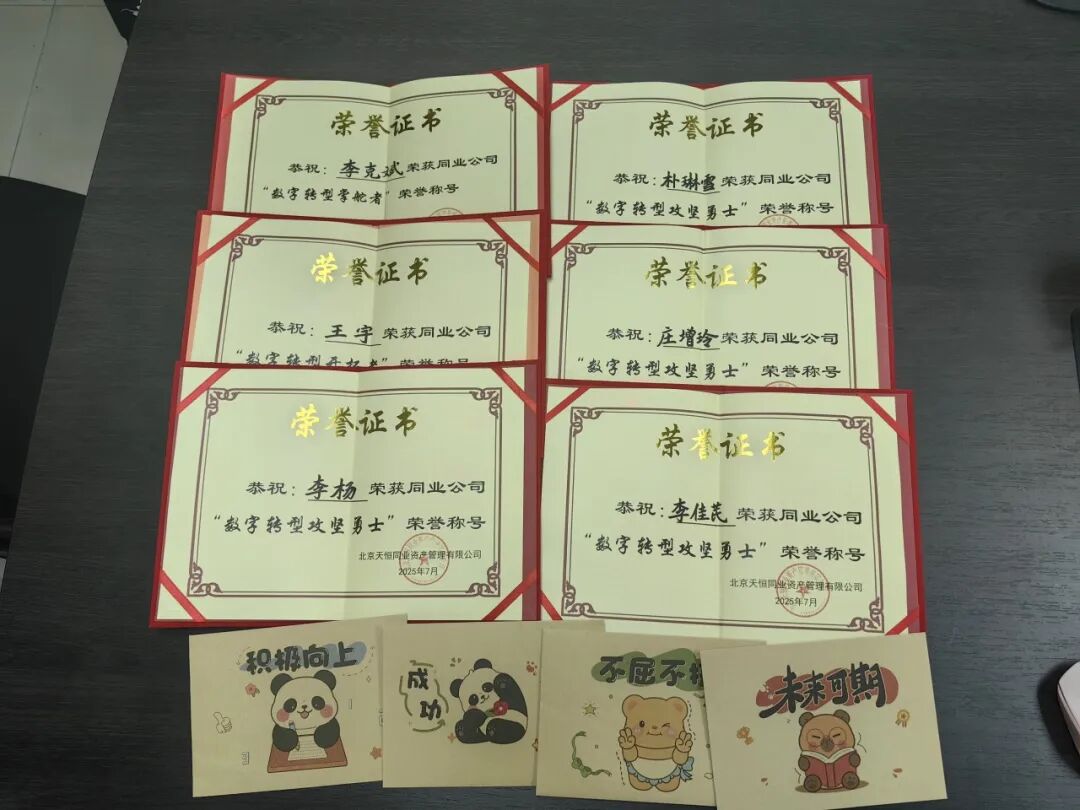 荣誉证书
恭祝：李克斌荣获同业公司
“数字转型掌舵者”荣誉称号
荣誉证书
恭祝：朴琳雪荣获同业公司
“数字转型攻坚勇士”荣誉称号
荣誉证书
恭祝：王宇荣获同业公司
“数字转型开拓者”荣誉称号
荣誉证书
恭祝：庄增玲荣获同业公司
“数字转型攻坚勇士”荣誉称号
荣誉证书
恭祝：李杨荣获同业公司
“数字转型攻坚勇士”荣誉称号
北京天恒同业资产管理有限公司
2025年7月
荣誉证书
恭祝：李佳芪荣获同业公司
“数字转型攻坚勇士”荣誉称号
北京天恒同业资产管理有限公司
2025年7月
积极向上
成功
不屈不
未来可期